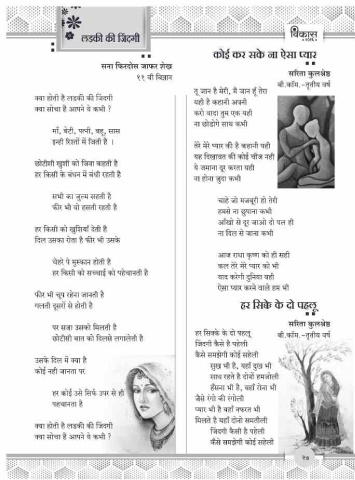 लडकी की जिंदगी
सना फिरदोस जाफर शेख
११ वी विज्ञान
क्या होती है लडकी की जिंदगी
क्या सोचा है आपने ये कभी ?
माँ, बेटी, पत्नी, बहु, सास
इन्ही रिशतों में जिती है ।
छोटीसी खुशी को जिना कहती है
हर किसी के बंधन में बंधी रहती है
सभी का जुल्म सहती है
फीर भी वो हसती रहती है
हर किसी को खुशियाँ देती है
दिल उसका रोता है फीर भी उसके
चेहरे पे मुस्कान होती है
हर किसी को सच्चाई को पहेचानती है
फीर भी चूप रहेना जानती है
गलती दूसरों से होती है
पर सजा उसको मिलती है
छोटीसी बात को दिलसे लगालेती है
उसके दिल में क्या है
कोई नही जानता पर
हर कोई उसे सिर्फ उपर से ही
पहचानता है
क्या होती है लडकी की जिंदगी
क्या सोचा है आपने ये कभी ?
विकास
कोई कर सके ना ऐसा प्यार
सरिता कुलश्रेष्ठ
बी.कॉम.-तृतीय वर्ष
तू जान है मेरी, मैं जान हूँ तेरा
यही है कहानी अपनी
करो वादा तुम एक यही
ना छोडोगे साथ कभी
तेरे मेरे प्यार की है कहानी यही
यह दिखावत की कोई चीज नही
ये जमाना दूर करता यही
ना होना जुदा कभी
चाहे जो मजबूरी हो तेरी
हमसे ना छुपाना कभी
आँखो से दूर जाओ दो पल ही
ना दिल से जाना कभी
आज राधा कृष्ण को ही सही
कल तेरे मेरे प्यार को भी
याद करेगी दुनिया यही
ऐसा प्यार करने वाले हम भी
हर सिके के दो पहलू
सरिता कुलश्रेष्ठ
बी.कॉम.-तृतीय वर्ष
हर सिक्के के दो पहलू
जिंदगी कैसे है पहेली
कैसे समझेगी कोई सहेली
सुख भी है, यहाँ दुख भी
साथ रहते है दोनों हमजोली
हँसना भी है, यहाँ रोना भी
जैसे रंगो की रंगोली
प्यार भी है यहाँ नफरत भी
मिलते है यहाँ दोनो समतौली
जिंदगी कैसी है पहेली
कैसे समझेगी कोई सहेली